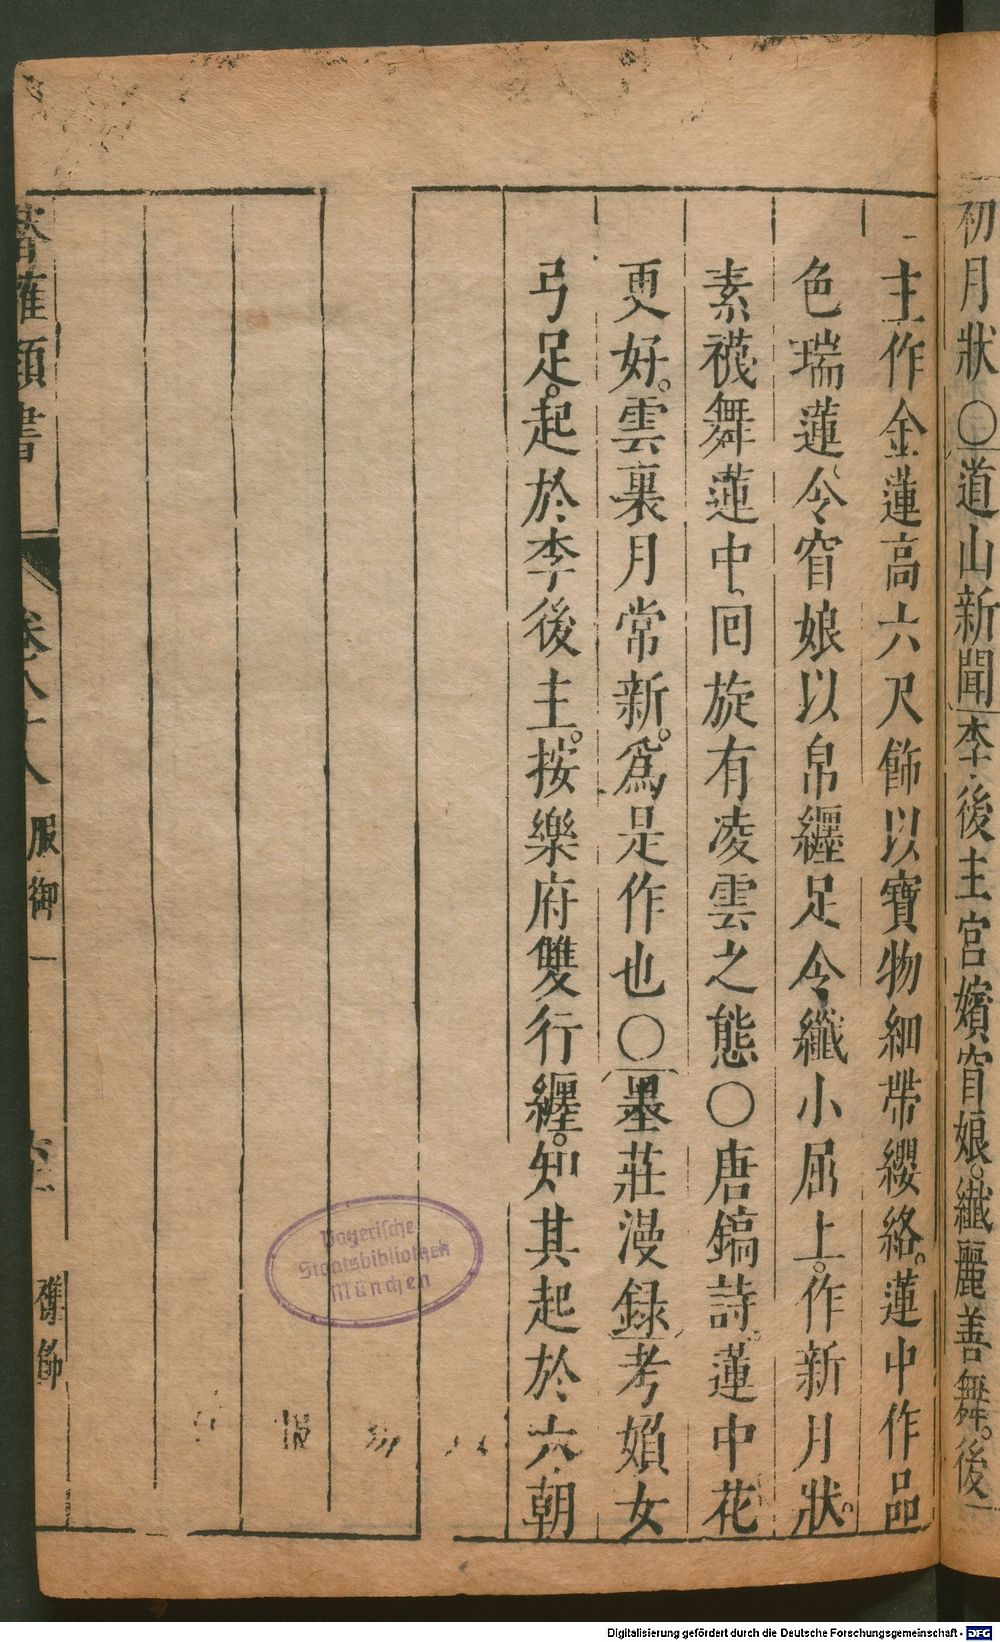 初月狀〇道山新聞李後主宮嬪窅娘纖麗善舞。後
主作金蓮高六尺飾以寶物細帶纓絡。蓮中作品
色瑞蓮、令窅娘以帛纏足令纖小屈上。作新月狀。
素襪舞蓮中、囘旋有凌雲之態〇唐鎬詩。蓮中花
更好。雲裏月常新。爲是作也〇墨莊漫録考嬪女
弓足。起於李後主。按樂府雙行纏。知其起於六朝
類書
卷八十八 服御一
雜飾
Bayerische
Staatsbibliothek
München
Digitalisierung gefördert durch die Deutsche Forschungsgemeinschaft - DFG